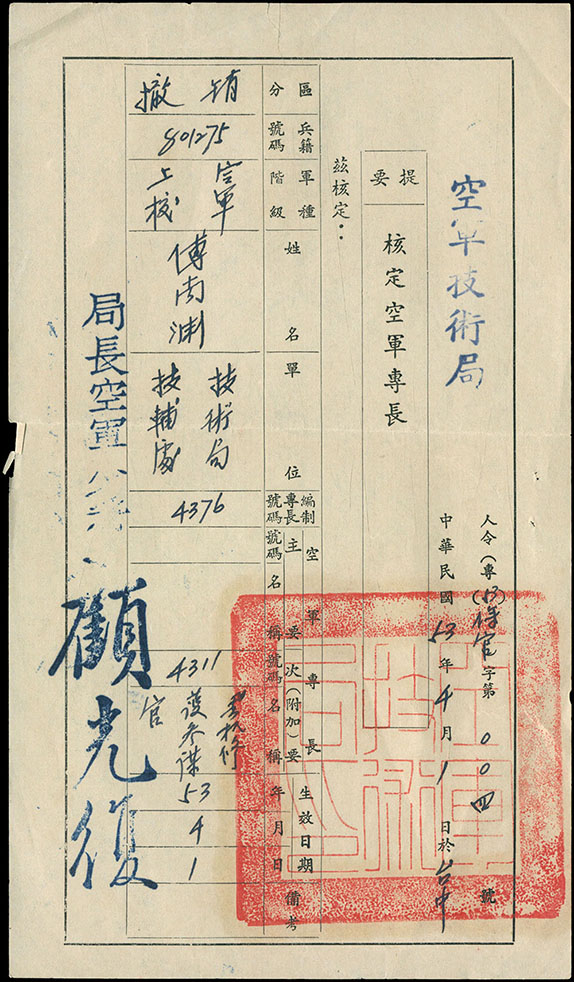 空軍技術局
人令(專)字第 〇〇四 號
中華民國 53 年 4 月 1 日於 台中
提要
核定空軍專長
茲核定：
區分
兵籍號碼
軍種階級
姓名
單位
編制專長號碼
空軍專長
主要
號碼
名稱
次(附加)要
號碼
名稱
生效日期
年
月
日
備考
撤銷
801275
空軍
上校
傅
技術局
技輔處
4376
4311
護參謀
官
53
4
1
局長空軍
顧光復
空軍技術局印